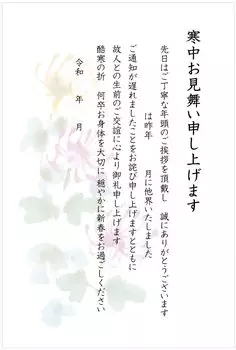 寒中お見舞い申し上げます
先日はご丁寧な年頭のご挨拶を頂戴し 誠にありがとうございます
は昨年 月に他界いたしました
ご通知が遅れましたことをお詫び申し上げますとともに
故人との生前のご交誼に心より御礼申し上げます
酷寒の折 何卒お身体を大切に 穏やかに新春をお過ごしください
令和 年 月